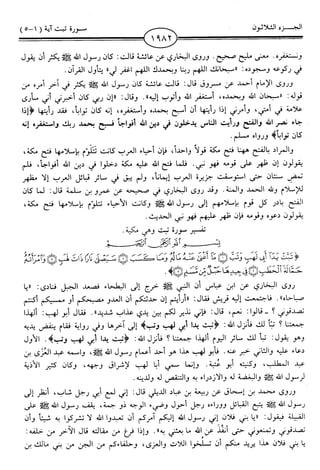 الجـــزء الثلاثـون
١٩٨٢
سـورة تبت آية (١-٥)
ونستغفره. معنى مليح صحيح. وروى البخاري عن عائشة قالت: كان رسول الله ﷺ يكثر أن يقول
في ركوعه وسجوده: «سبحانك اللهم ربنا وبحمدك اللهم اغفر لي» يتأول القرآن.
وروى الإمام أحمد عن مسروق قال: قالت عائشة كان رسول الله ﷺ يكثر في آخر أمره من
قوله: «سبحان الله وبحمده، أستغفر الله وأتوب إليه». وقال: «إن ربي كان أخبرني أني سأرى
علامة في أمتي، وأمرني إذا رأيتها أن أسبح بحمده وأستغفره، إنه كان تواباً، فقد رأيتها ﴿إذا
جاء نصر الله والفتح ورأيت الناس يدخلون في دين الله أفواجاً فسبح بحمد ربك واستغفره إنه
كان تواباً﴾ ورواه مسلم.
والمراد بالفتح ههنا فتح مكة قولاً واحداً، فإن أحياء العرب كانت تتلوم بإسلامها فتح مكة،
يقولون إن ظهر على قومه فهو نبي. فلما فتح الله عليه مكة دخلوا في دين الله أفواجاً، فلم
تمض سنتان حتى استوسقت جزيرة العرب إيماناً، ولم يبق في سائر قبائل العرب إلا مظهر
للإسلام ولله الحمد والمنة. وقد روى البخاري في صحيحه عن عمرو بن سلمة قال: لما كان
الفتح بادر كل قوم بإسلامهم إلى رسول الله ﷺ وكانت الأحياء تتلوم بإسلامها فتح مكة،
يقولون دعوه وقومه فإن ظهر عليهم فهو نبي الحديث.
تفسير سورة تبت وهي مكية.
بسم الله الرحمن الرحيم
﴿تَبَّتْ يَدَا أَبِي لَهَبٍ وَتَبَّ ۝ مَا أَغْنَى عَنْهُ مَالُهُ وَمَا كَسَبَ ۝ سَيَصْلَى نَارًا ذَاتَ لَهَبٍ ۝ وَامْرَأَتُهُ
حَمَّالَةَ الْحَطَبِ ۝ فِي جِيدِهَا حَبْلٌ مِنْ مَسَدٍ ۝﴾
روى البخاري عن ابن عباس أن النبي ﷺ خرج إلى البطحاء فصعد الجبل فنادى: «يا
صباحاه». فاجتمعت إليه قريش فقال: «أرأيتم إن حدثتكم أن العدو مصبحكم أو ممسيكم أكنتم
تصدقوني؟ ـ قالوا: نعم، قال: فإني نذير لكم بين يدي عذاب شديد». فقال أبو لهب: ألهذا
جمعتنا؟ تباً لك فأنزل الله: ﴿تبت يدا أبي لهب وتب﴾ إلى آخرها وفي رواية فقام ينفض يديه
وهو يقول: تباً لك سائر اليوم ألهذا جمعتنا؟ فأنزل الله: ﴿تبت يدا أبي لهب وتب﴾. الأول
دعاء عليه والثاني خبر عنه. فأبو لهب هذا هو أحد أعمام رسول الله ﷺ، واسمه عبد العُزّى بن
عبد المطلب، وكنيته أبو عُتبة. وإنما سمي أبا لهب لإشراق وجهه، وكان كثير الأذية
لرسول الله ﷺ والبغضة له والازدراء به والتنقص له ولدينه.
وروى محمد بن إسحاق عن ربيعة بن عباد الديلي قال: إني لمع أبي رجل شاب، أنظر إلى
رسول الله ﷺ يتبع القبائل ووراءه رجل أحول وضيء الوجه ذو جمة، يقف رسول الله ﷺ على
القبيلة فيقول: «يا بني فلان إني رسول الله إليكم آمركم أن تعبدوا الله لا تشركوا به شيئاً وأن
تصدقوني وتمنعوني حتى أنفذ عن الله ما بعثني به». وإذا فرغ من مقالته قال الآخر من خلفه:
يا بني فلان هذا يريد منكم أن تسلخوا اللات والعزى، وحلفاءكم من الجن من بني مالك بن